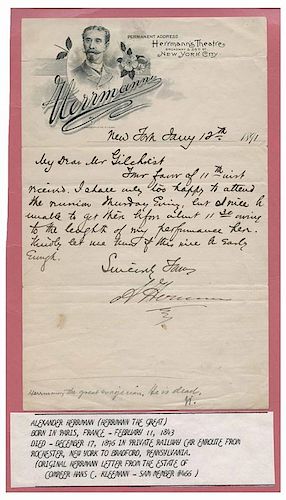 PERMANENT ADDRESS
Herrmann's Theatre
NEW YORK CITY.
Herrmann
New York Jany 12th 1891
My Dear Mr Gilchrist
Your favor of 11th inst
received. I shall only too happy to attend
the reunion Thursday Evng, but I will be
unable to get there before about 11 30 owing
to the length of my performance here.
Kindly let me know if this will be Early
Enough.
Sincerely Yours
A Herrmann
Herrmann, the great magician. He is dead.
ALEXANDER HERRMANN (HERRMANN THE GREAT)
BORN IN PARIS, FRANCE - FEBRUARY 11, 1843
DIED - DECEMBER 17, 1896 IN PRIVATE RAILWAY CAR ENROUTE FROM
ROCHESTER, NEW YORK TO BRADFORD, PENNSYLVANIA.
(ORIGINAL HERRMANN LETTER FROM THE ESTATE OF
COMPEER HANS C. KLEEMAN - SAM MEMBER #466 )